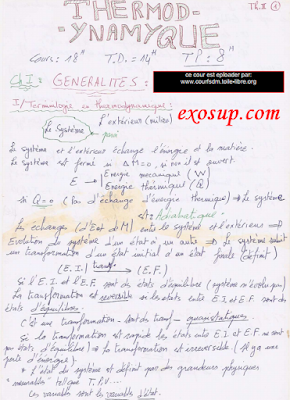 Th.II (1)
THERMOD-
YNAMYQUE
Cours: 18H T.D.=14H TP: 8H
ce cour est eploader par:
www.coursdsm.toile-libre.org
Ch I: GENERALITES:
exosup.com
I/ Termologie en thermodynamique:
Le Système
l'extérieur (milieu)
Le système et l'extérieur échange l'énergie et la matière.
Le système est fermé si ΔM=0, si non il est ouvert.
E → Energie mécanique (W)
Energie thermique (Q)
si Q=0 (Pas d'échange d'énergie thermique) ⇒ Le système
est: Adiabatique.
Les échange (d'E et d M) entre le système et l'extérieur ⇒
Evolution du système d'un état à un autre ⇒ Le système subit
un transformation d'un état initial à un état finale (définit)
(E.I.) transf. → (E.F.)
Si l'E.I et l'E.F sont des états d'équilibre (système n'évolue)
La transformation est reversible si les états entre E.I et E.F sont des
états d'équilibre.
C'est une transformation quasistatiques.
Si la transformation est rapide les états entre E.I et E.F ne sont
pas états d'équilibre) ⇒ La transformation est irreversible (il y a une
perte d'énergie)
* L'état du système est définit par des grandeurs physiques
"mesurable" tell que T.P.V....
Les variables sont les variables d'état.